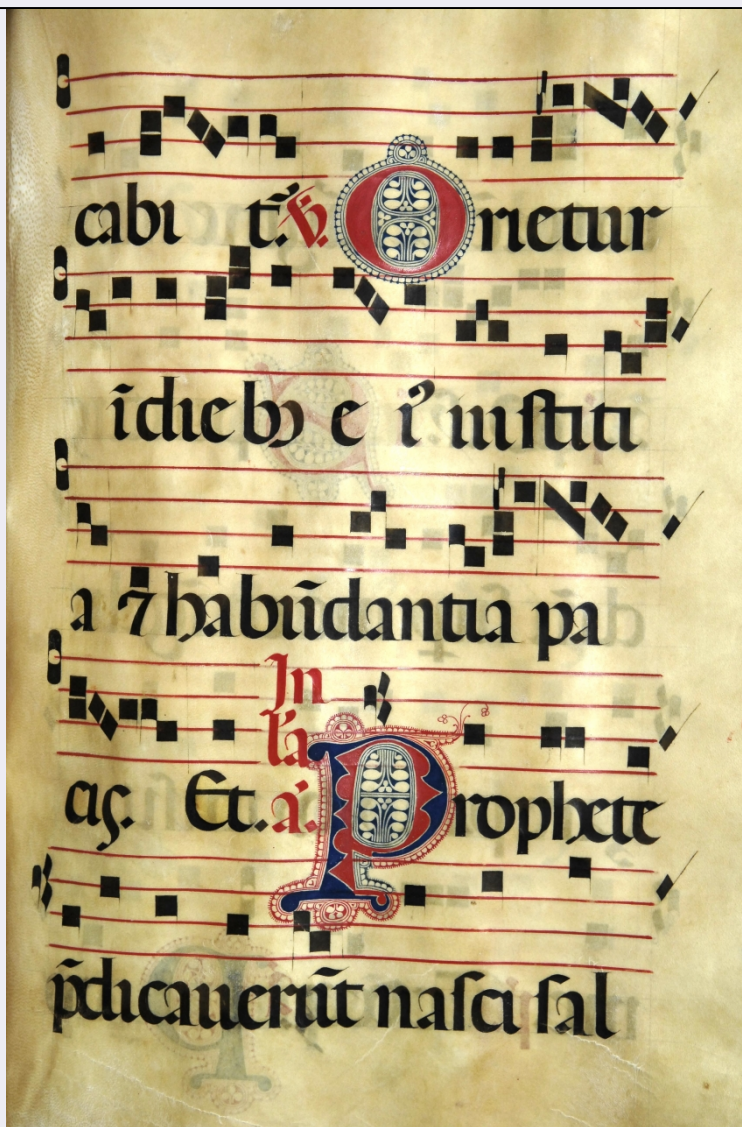 cabi t̄. ℣. Orietur
ī dieb⁹ ei⁹ iustiti
a ⁊ habūdantia pa
In
la
cis. Et. a. Prophete
p̄dicauerūt nasci sal